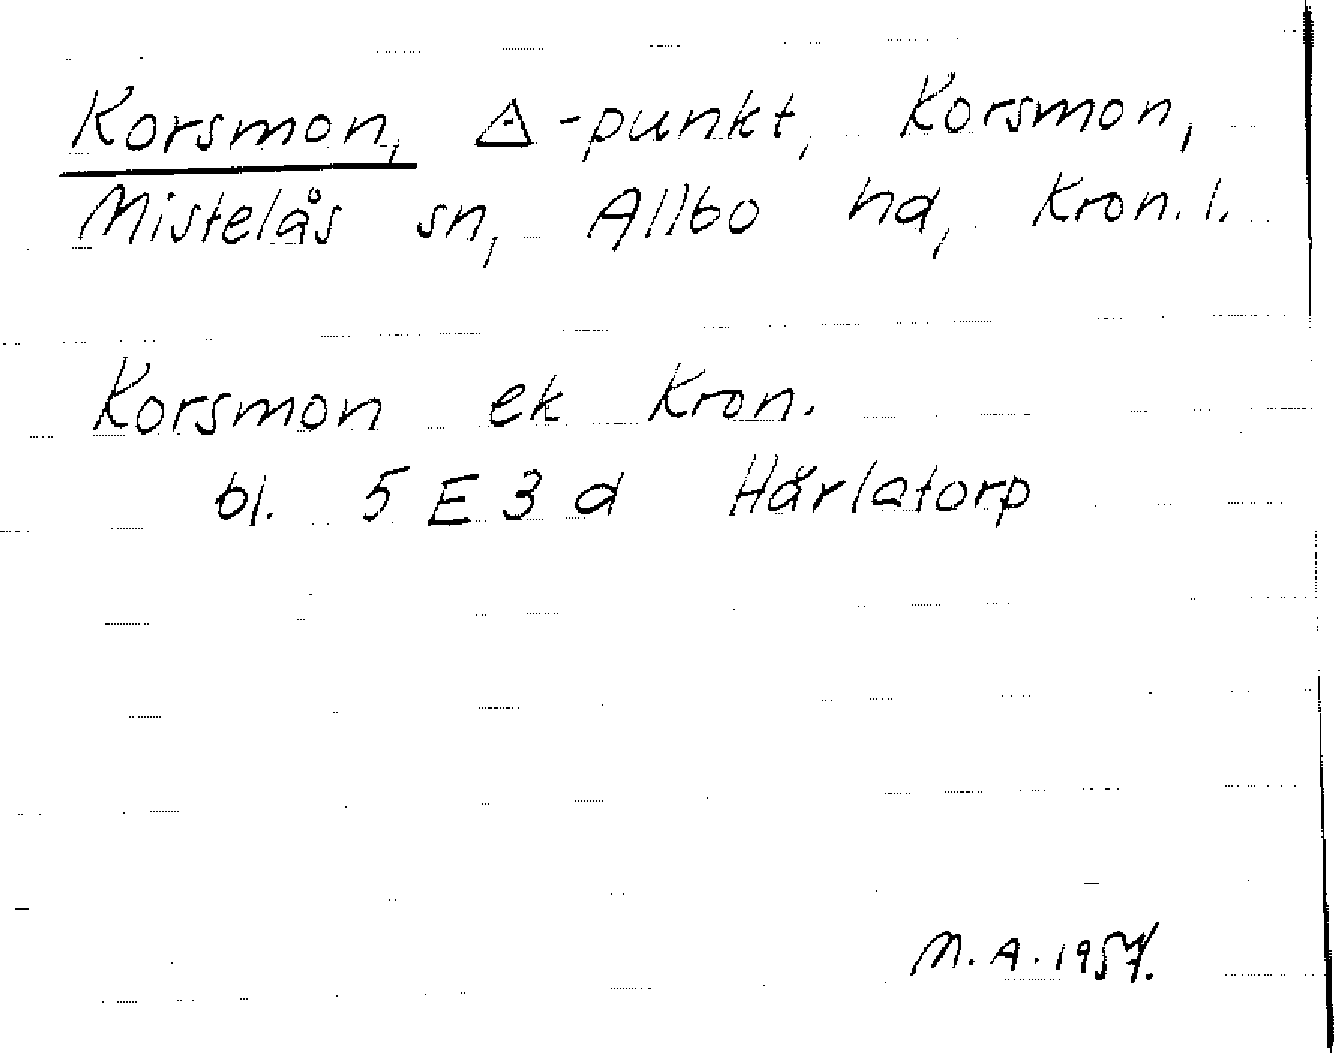 Korsmon, △-punkt, Korsmon,
Mistelås sn, Allbo hd, Kron. l.
Korsmon ek Kron.
bl. 5 E 3 d Härlatorp
M. A. 1957.